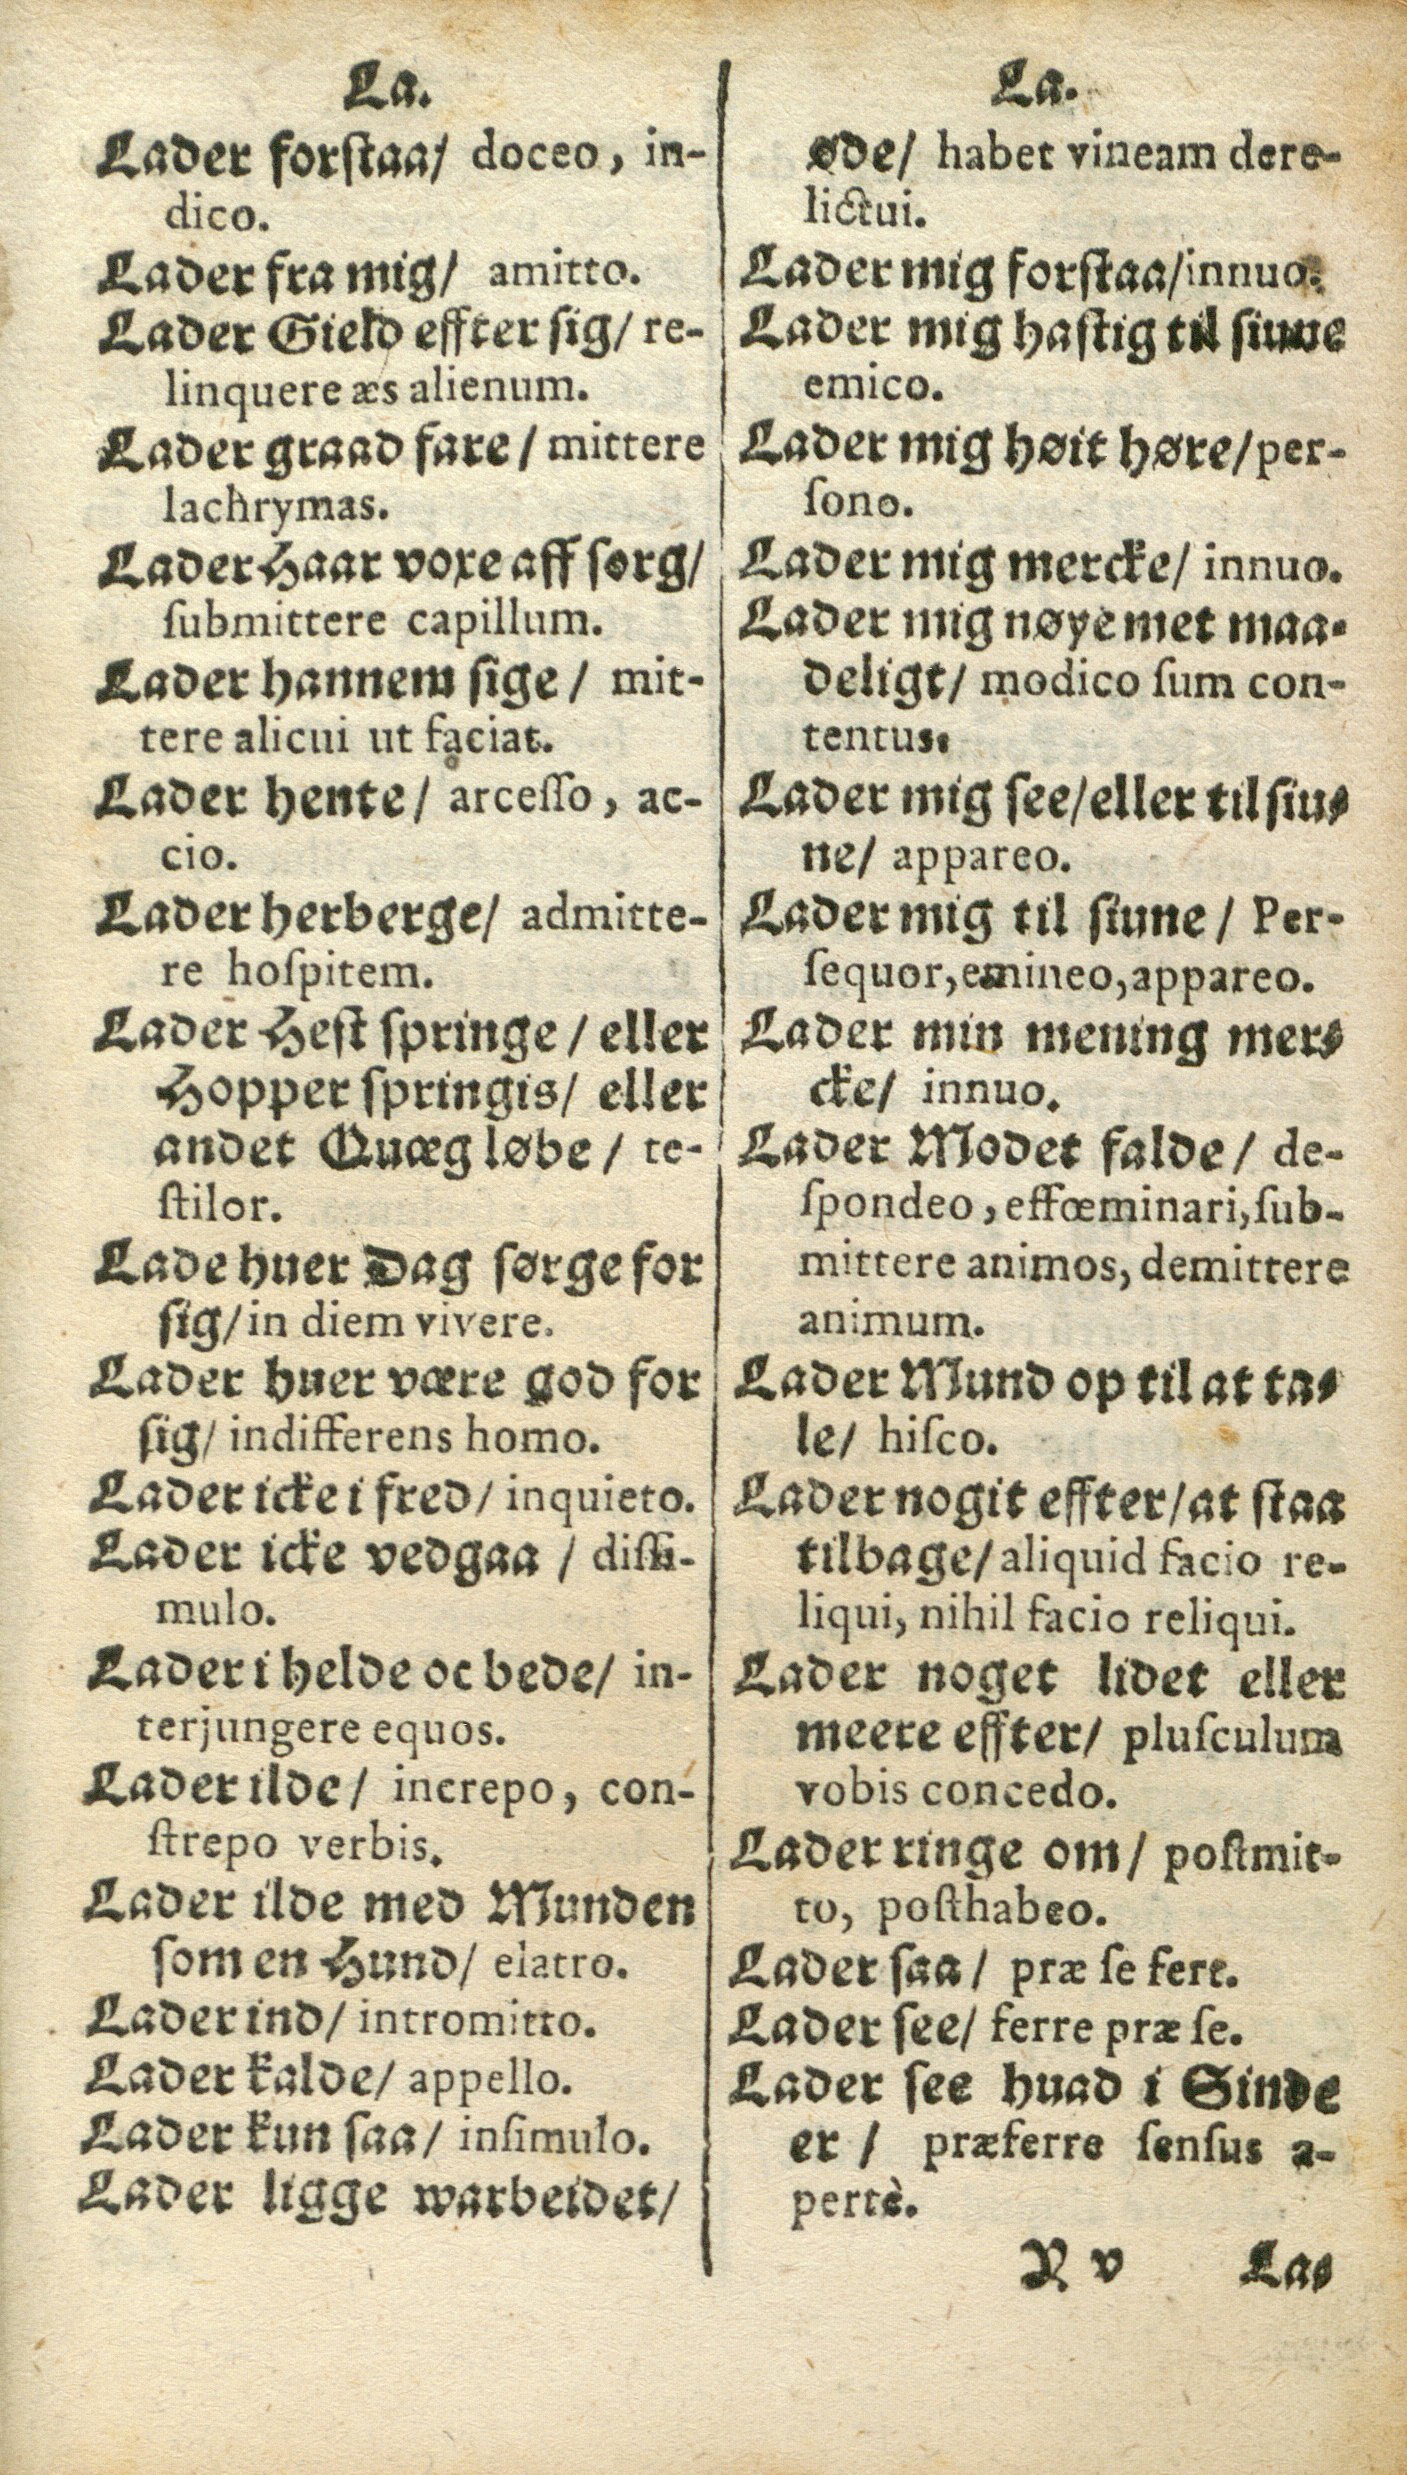 La.
Lader forſtaa/ doceo, in-
dico.
Lader fra mig/ amitto.
Lader Gield effter ſig/ re-
linquere æs alienum.
Lader graad fare/ mittere
lachrymas.
Lader Haar voxe aff ſorg/
ſubmittere capillum.
Lader hannem ſige/ mit-
tere alicui ut faciat.
Lader hente/ arceſſo, ac-
cio.
Lader herberge/ admitte-
re hoſpitem.
Lader Heſt ſpringe/ eller
Hopper ſpringis/ eller
andet Quæg løbe/ te-
ſtilor.
Lade huer Dag ſørge for
ſig/ in diem vivere.
Lader huer være god for
ſig/ indifferens homo.
Lader icke i fred/ inquieto.
Lader icke vedgaa/ diſſi-
mulo.
Lader i helde oc bede/ in-
terjungere equos.
Lader ilde/ increpo, con-
ſtrepo verbis.
Lader ilde med Munden
ſom en Hund/ elatro.
Lader ind/ intromitto.
Lader kalde/ appello.
Lader kun ſaa/ inſimulo.
Lader ligge warbeidet/
La.
øde/ habet vineam dere-
lictui.
Lader mig forſtaa/ innuo.
Lader mig haſtig til ſiune
emico.
Lader mig høit høre/ per-
ſono.
Lader mig mercke/ innuo.
Lader mig nøye met maa-
deligt/ modico ſum con-
tentus.
Lader mig ſee/ eller til ſiu-
ne/ appareo.
Lader mig til ſiune/ Per-
ſequor, emineo, appareo.
Lader min mening mer-
cke/ innuo.
Lader Modet falde/ de-
ſpondeo, effœminari, ſub-
mittere animos, demittere
animum.
Lader Mund op til at ta-
le/ hiſco.
Lader nogit effter/ at ſtaa
tilbage/ aliquid facio re-
liqui, nihil facio reliqui.
Lader noget lidet eller
meere effter/ pluſculum
vobis concedo.
Lader ringe om/ poſtmit-
to, poſthabeo.
Lader ſaa/ præ ſe fert.
Lader ſee/ ferre præ ſe.
Lader ſee huad i Sinde
er/ præferre ſenſus a-
pertè.
R v La-